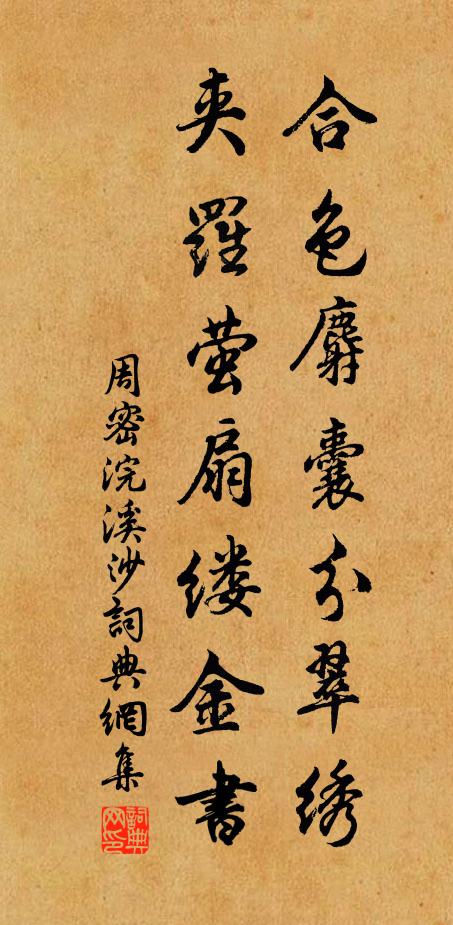 合色麝囊分翠绣
夹羅萤扇缕金書
周密浣溪沙詞典網集
詞典网印